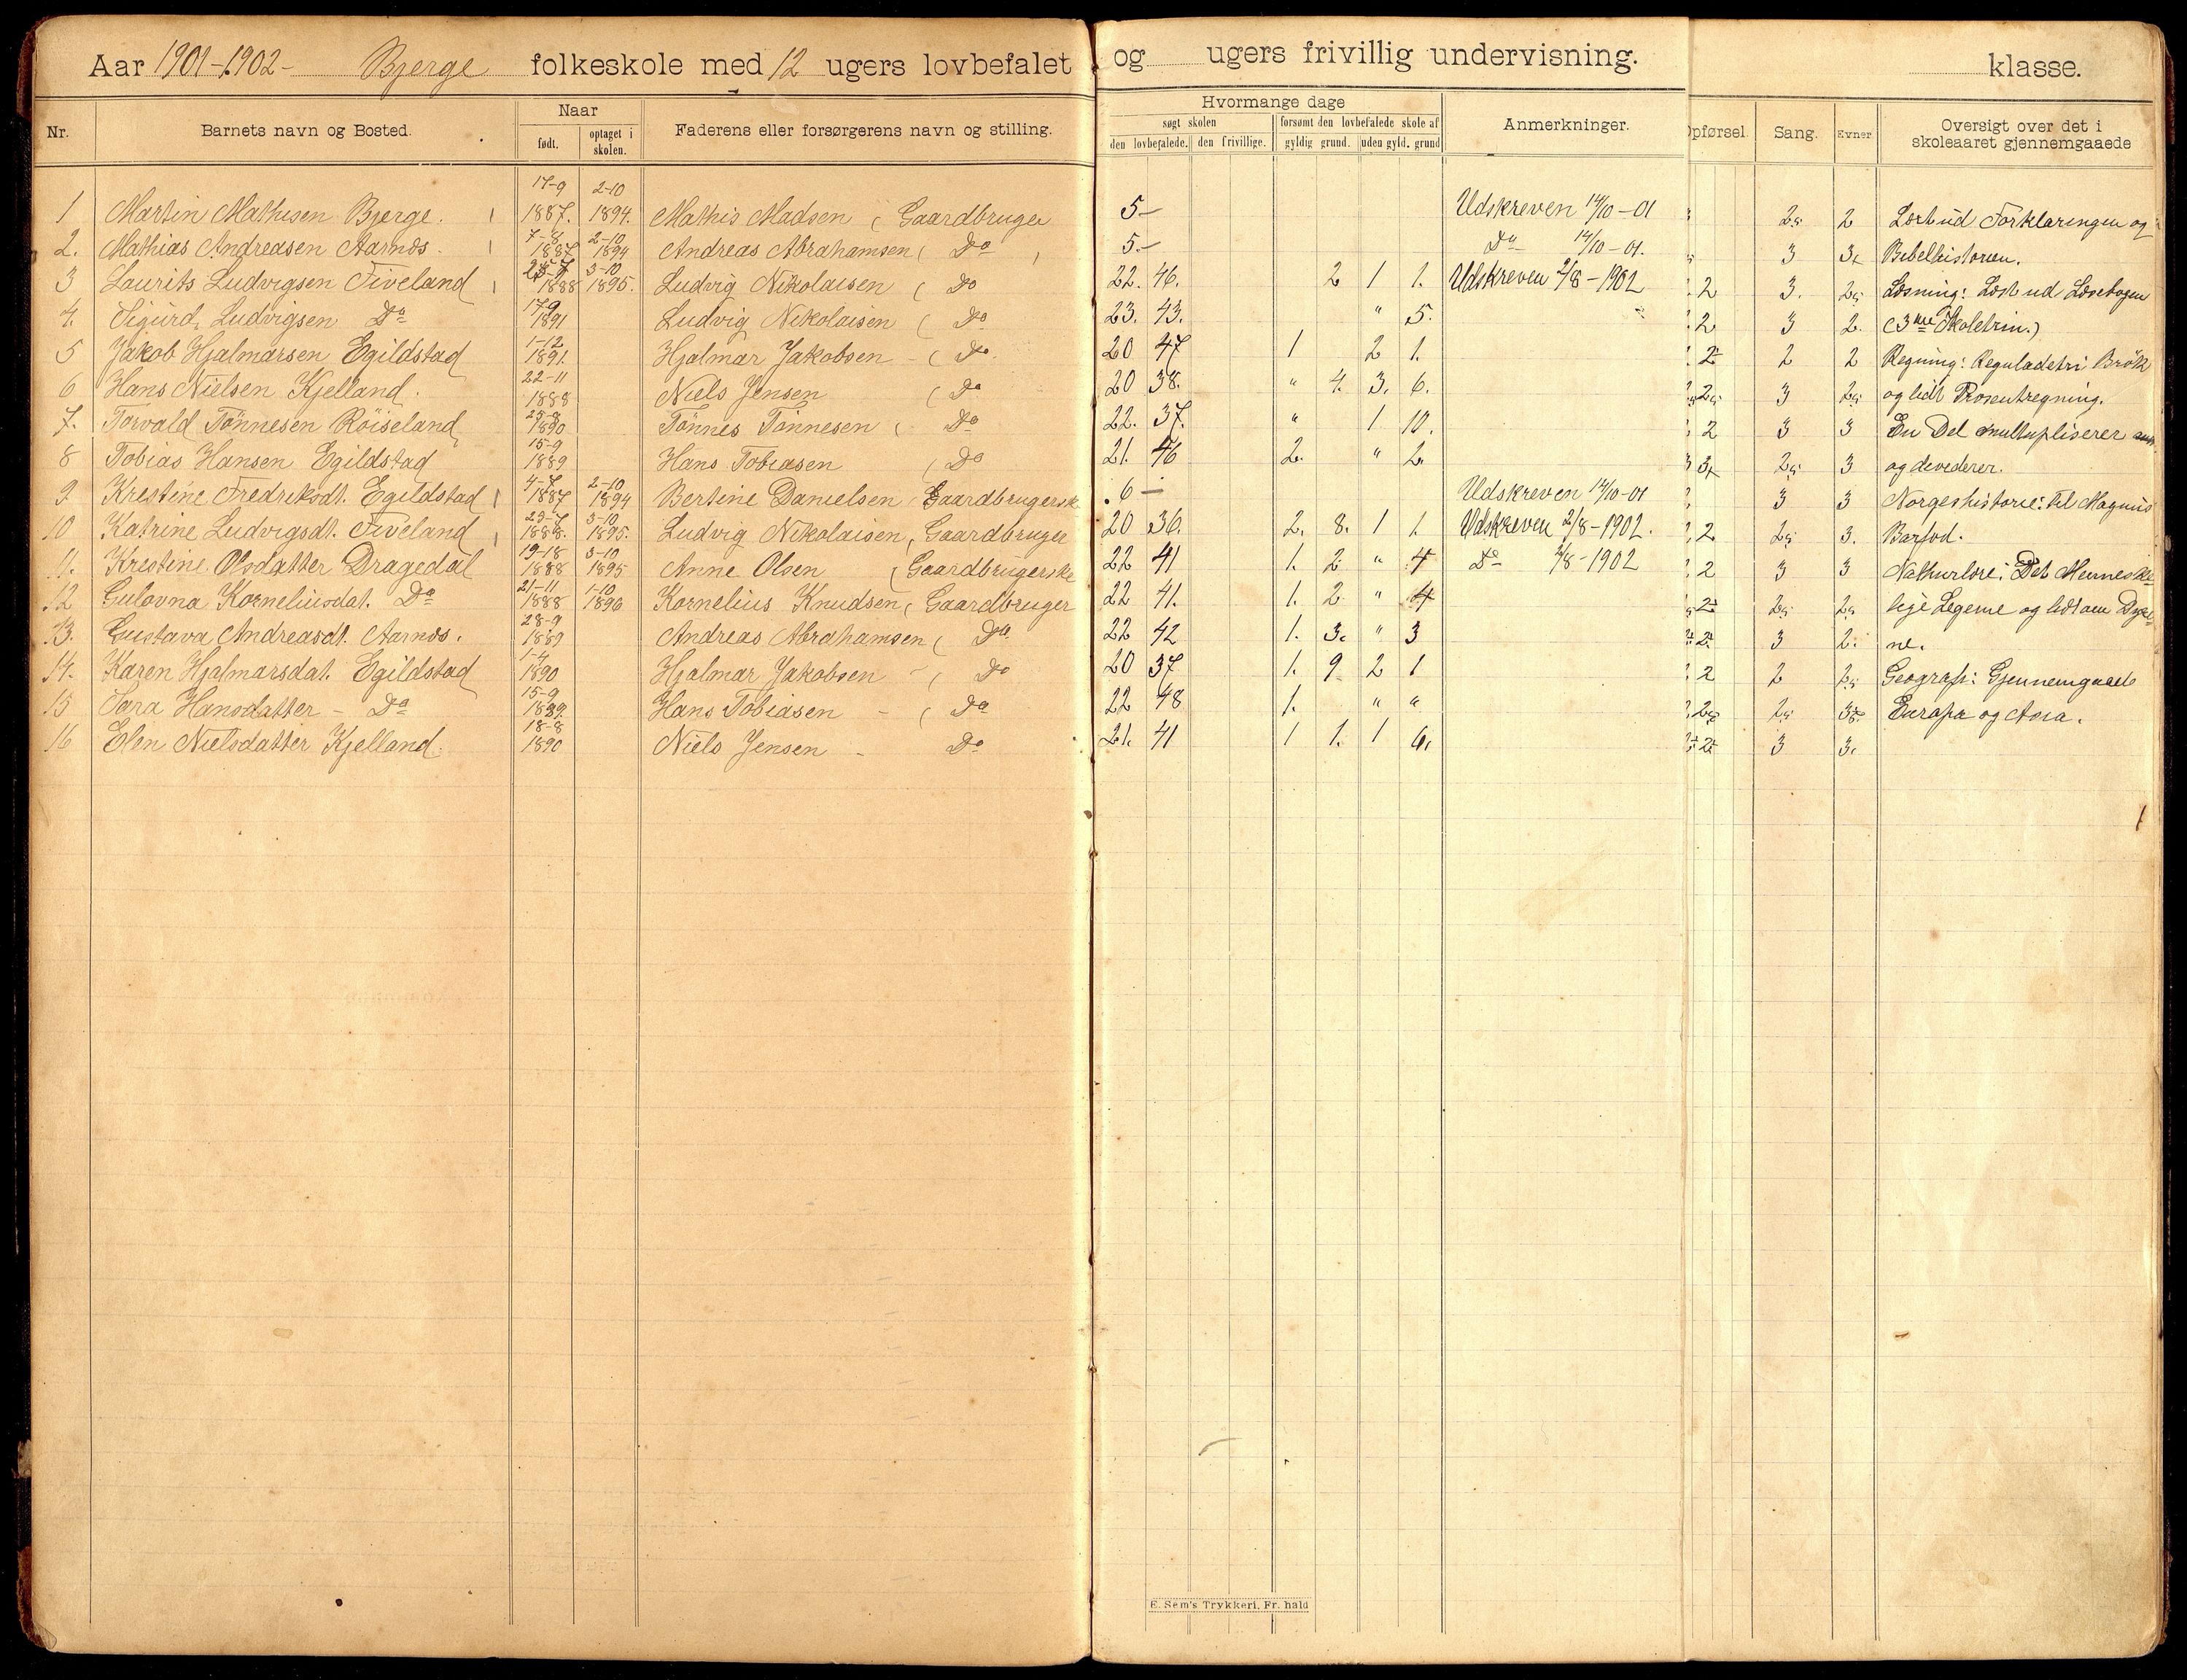 Aar 1901-1902- Bjerge folkeskole med 12 ugers lovbefalet og ugers frivillig undervisning. klasse.
Nr. Barnets navn og Bosted. Naar født. optaget i skolen. Faderens eller forsørgerens navn og stilling. Hvormange dage søgt skolen den lovbefalede. den frivillige. forsømt den lovbefalede skole af gyldig grund. uden gyld. grund Anmerkninger. Opførsel. Sang. Evner Oversigt over det i skoleaaret gjennemgaaede
1 Martin Mathisen Bjerge. 17-9 1887. 2-10 1894. Mathis Madsen ( Gaardbruger 5- Udskreven 14/10-01 2 Læst ud Forklaringen og
2. Mathias Andreasen Aarnæs. 7-8 1887 2-10 1894 Andreas Abrahamsen ( Do 5.- Do 14/10-01. 3 Bibelhistorien.
3 Laurits Ludvigsen Fiveland 1888 3-10 1895. Ludvig Nikolaisen ( Do 22. 46. 2 1 1. Udskreven 2/8-1902 2 3. Læsning: Læst ud Læsebogen
4. Sigurd Ludvigsen Do 17-9 1891 Ludvig Nikolaisen ( Do 23. 43. " 5. 2 3 2. (3die Skoletrin.)
5 Jakob Hjalmarsen Egildstad 1-12 1891. Hjalmar Jakobsen - ( Do. 20 47 1 2 1. 2 2 Regning: Reguladetri Brök
6 Hans Nielsen Kjelland. 22-11 1888 Niels Jensen ( Do 20 38. " 4. 3. 6. 3 og lidt Prosentregning.
7. Torvald Tönnesen Röiseland 1890 Tönnes Tönnesen ( Do 22. 37. " 1 10. 2 3 3 En Del multipliserer
8 Tobias Hansen Egildstad 15-9 1889 Hans Tobiasen ( Do 21. 46 2. " 2. 3 og devederer.
9. Krestine Fredriksdt. Egildstad 4-7 1887 2-10 1894 Bertine Danielsen Gaardbrugersk 6- Udskreven 14/10-01 3 3 Norgeshistorie: til Magnus
10 Katrine Ludvigsdt. Fiveland 1888. 3-10 1895. Ludvig Nikolaisen, Gaardbruger 20 36. 2. 8. 1 1. Udskreven 2/8-1902. 2 3. Barfod.
11. Krestine Olsdatter Dragedal 19-18 1888 3-10 1895 Anne Olsen ( Gaardbrugerske 22 41 1. 2 " 4 Do 2/8-1902 2 3 3 Nathurlære: Det Menneske
12 Gulovna Korneliusdat. Do 21-11 1888 1-10 1896 Kornelius Knudsen ( Gaardbruger 22 41. 1. 2 " 4 lige Legeme og lidt om Dyre
13. Gustava Andreasdt. Aarnæs. 28-9 1889 Andreas Abrahamsen ( Do 22 42 1. 3. " 3 3 2. ne.
14. Karen Hjalmarsdat. Egildstad 1-4 1890 Hjalmar Jakobsen - ( Do 20 37 1. 9 2 1 2 2 Geografi: Gjennemgaaet
15 Sara Hansdatter - Do 15-9 1889. Hans Tobiasen - ( Do 22 48 1. " " Europa og Asia.
16 Elen Nielsdatter Kjelland. 18-8 1890 Niels Jensen - Do 21. 41 1 1. 1 6. 3 3.
E. Sem's Trykkeri, Fr. hald